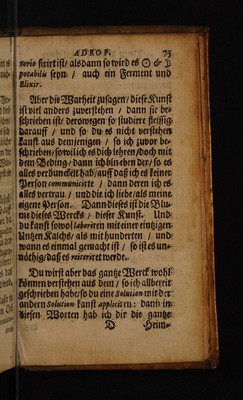 ADROP. 73
norio figirt ist/ alsdann so wird es ☉ & ☽
potabilis seyn / auch ein Ferment und
Elixir.
Aber die Warheit zusagen/ diese Kunst
ist viel anders zuverstehen / dann sie be-
schrieben ist/ derowegen so studiere fleissig
darauff / und so du es nicht verstehen
kanst aus demjenigen / so ich zuvor be-
schrieben/ so will ich es dich lehren/ doch mit
dem Beding/ dann ich bin eben der/ so es
alles verdunckelt hab/ auff daß ich es keiner
Person communicirte / dann deren ich es
alles vertrau / und die ich liebe/ als meine
eigene Person. Dann dieses ist die Blu-
me dieses Wercks / dieser Kunst. Und
du kanst sowol laboriren mit einer eintzigen
Untzen Kalchs/ als mit hunderten / und
wann es einmal gemacht ist / so ist es un-
nöthig/ daß es reiterirt werde.
Du wirst aber das gantze Werck wohl
können verstehen aus dem / so ich allbereit
geschrieben habe/ so du eine Solution mit der
andern Solution kanst appliciren: dann in
diesen Worten hab ich dir die gantze
D Heim-